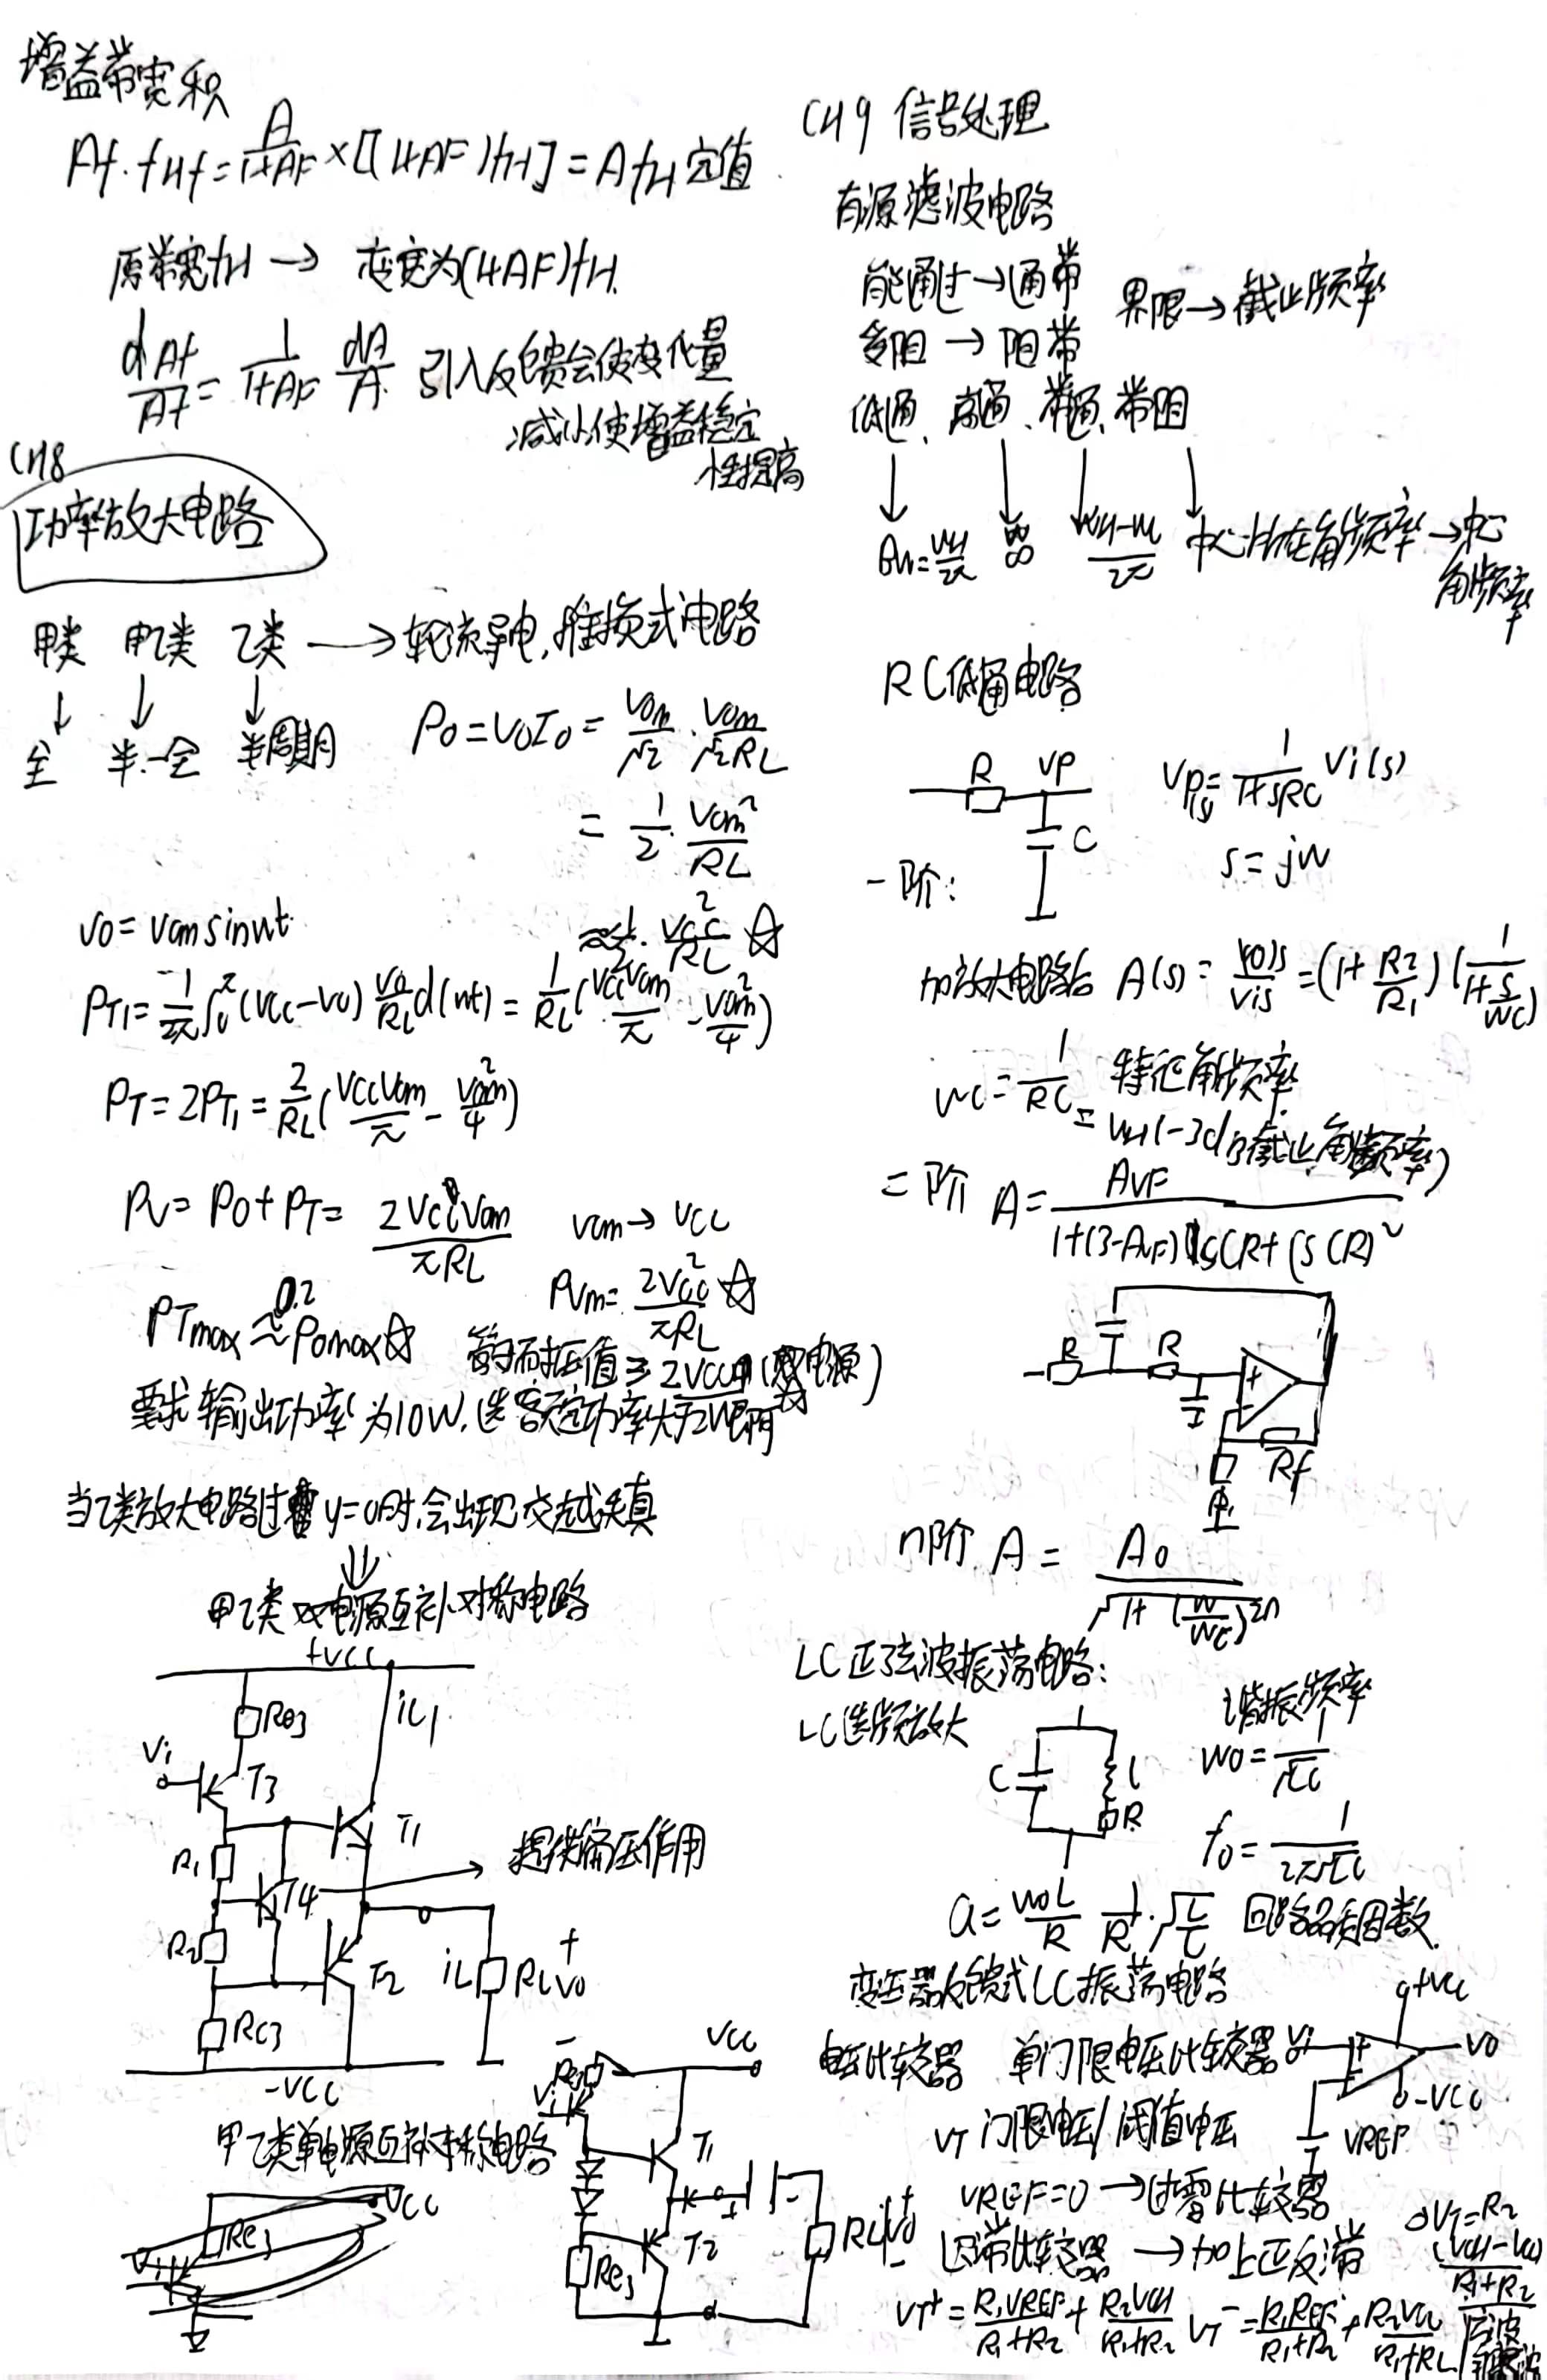 增益带宽积
Af·fHf = A/(1+AF) × [(1+AF)fH] = AfH 定值
原带宽fH → 变宽为(1+AF)fH
dAf/Af = 1/(1+AF) dA/A 引入反馈会使变化量
减小,使增益稳定
性提高
CH8
功率放大电路
甲类 甲乙类 乙类 → 轮流导电,推挽式电路
↓ ↓ ↓
全 半-全 半周期
Po = VoIo = Vom/√2 · Vom/(√2RL)
= 1/2 · Vom²/RL
≈ 1/2 · Vcc²/RL ☆
vo = Vom sinwt
PT1 = 1/2π ∫₀^π (Vcc-vo) vo/RL d(wt) = 1/RL (VccVom/π - Vom²/4)
PT = 2PT1 = 2/RL (VccVom/π - Vom²/4)
Pv = Po + PT = 2VccVom/πRL Vom → Vcc
Pvm = 2Vcc²/πRL ☆
PTmax ≈ 0.2 Pomax ☆
管子耐压值 ≥ 2Vcc (双电源)
要求输出功率为10W,选额定功率大于2W
当乙类放大电路过 y=0时,会出现交越失真
⇓
甲乙类双电源互补对称电路
+VCC
Re3 iC1
Vi T3
R1 T1
T4 → 提供偏压作用
R2 T2 iL RL + Vo
RC3 -
-VCC
甲乙类单电源互补对称电路
VCC
Re3
Vi
VCC
Vi
T1
T2
Re3
RL + Vo -
CH9 信号处理
有源滤波电路
能通过 → 通带 界限 → 截止频率
多阻 → 阻带
低通、高通、带通、带阻
↓ ↓ ↓ ↓
BW = WH/2π ∞ (WH-WL)/2π 中心所在角频率 → 中心
角频率
RC低通电路
R VP C
VP(s) = 1/(1+sRC) Vi(s)
s = jw
一阶:
加放大电路后 A(s) = Vo(s)/Vi(s) = (1+R2/R1)(1/(1+s/wc))
wc = 1/RC 特征角频率
= wH (-3dB截止角频率)
二阶 A = AVF/(1+(3-AVF)sCR+(sCR)²)
R R
+ -
Rf
n阶 A = A0/√(1+(w/wc)2n)
LC正弦波振荡电路:
LC选频放大
C L R
谐振频率
w0 = 1/√LC
f0 = 1/2π√LC
Q = w0L/R 1/R·√(L/C) 回路品质因数.
变压器反馈式LC振荡电路
电压比较器 单门限电压比较器
+VCC
Vi + - VO
-VCC
VREF
VT 门限电压/阈值电压
VREF=0 → 过零比较器
迟滞比较器 → 加上正反馈
△VT = R2(VOH-VOL)/(R1+R2)
VT+ = R1VREF/(R1+R2) + R2VOH/(R1+R2) VT- = R1REF/(R1+R2) + R2VOL/(R1+R2)